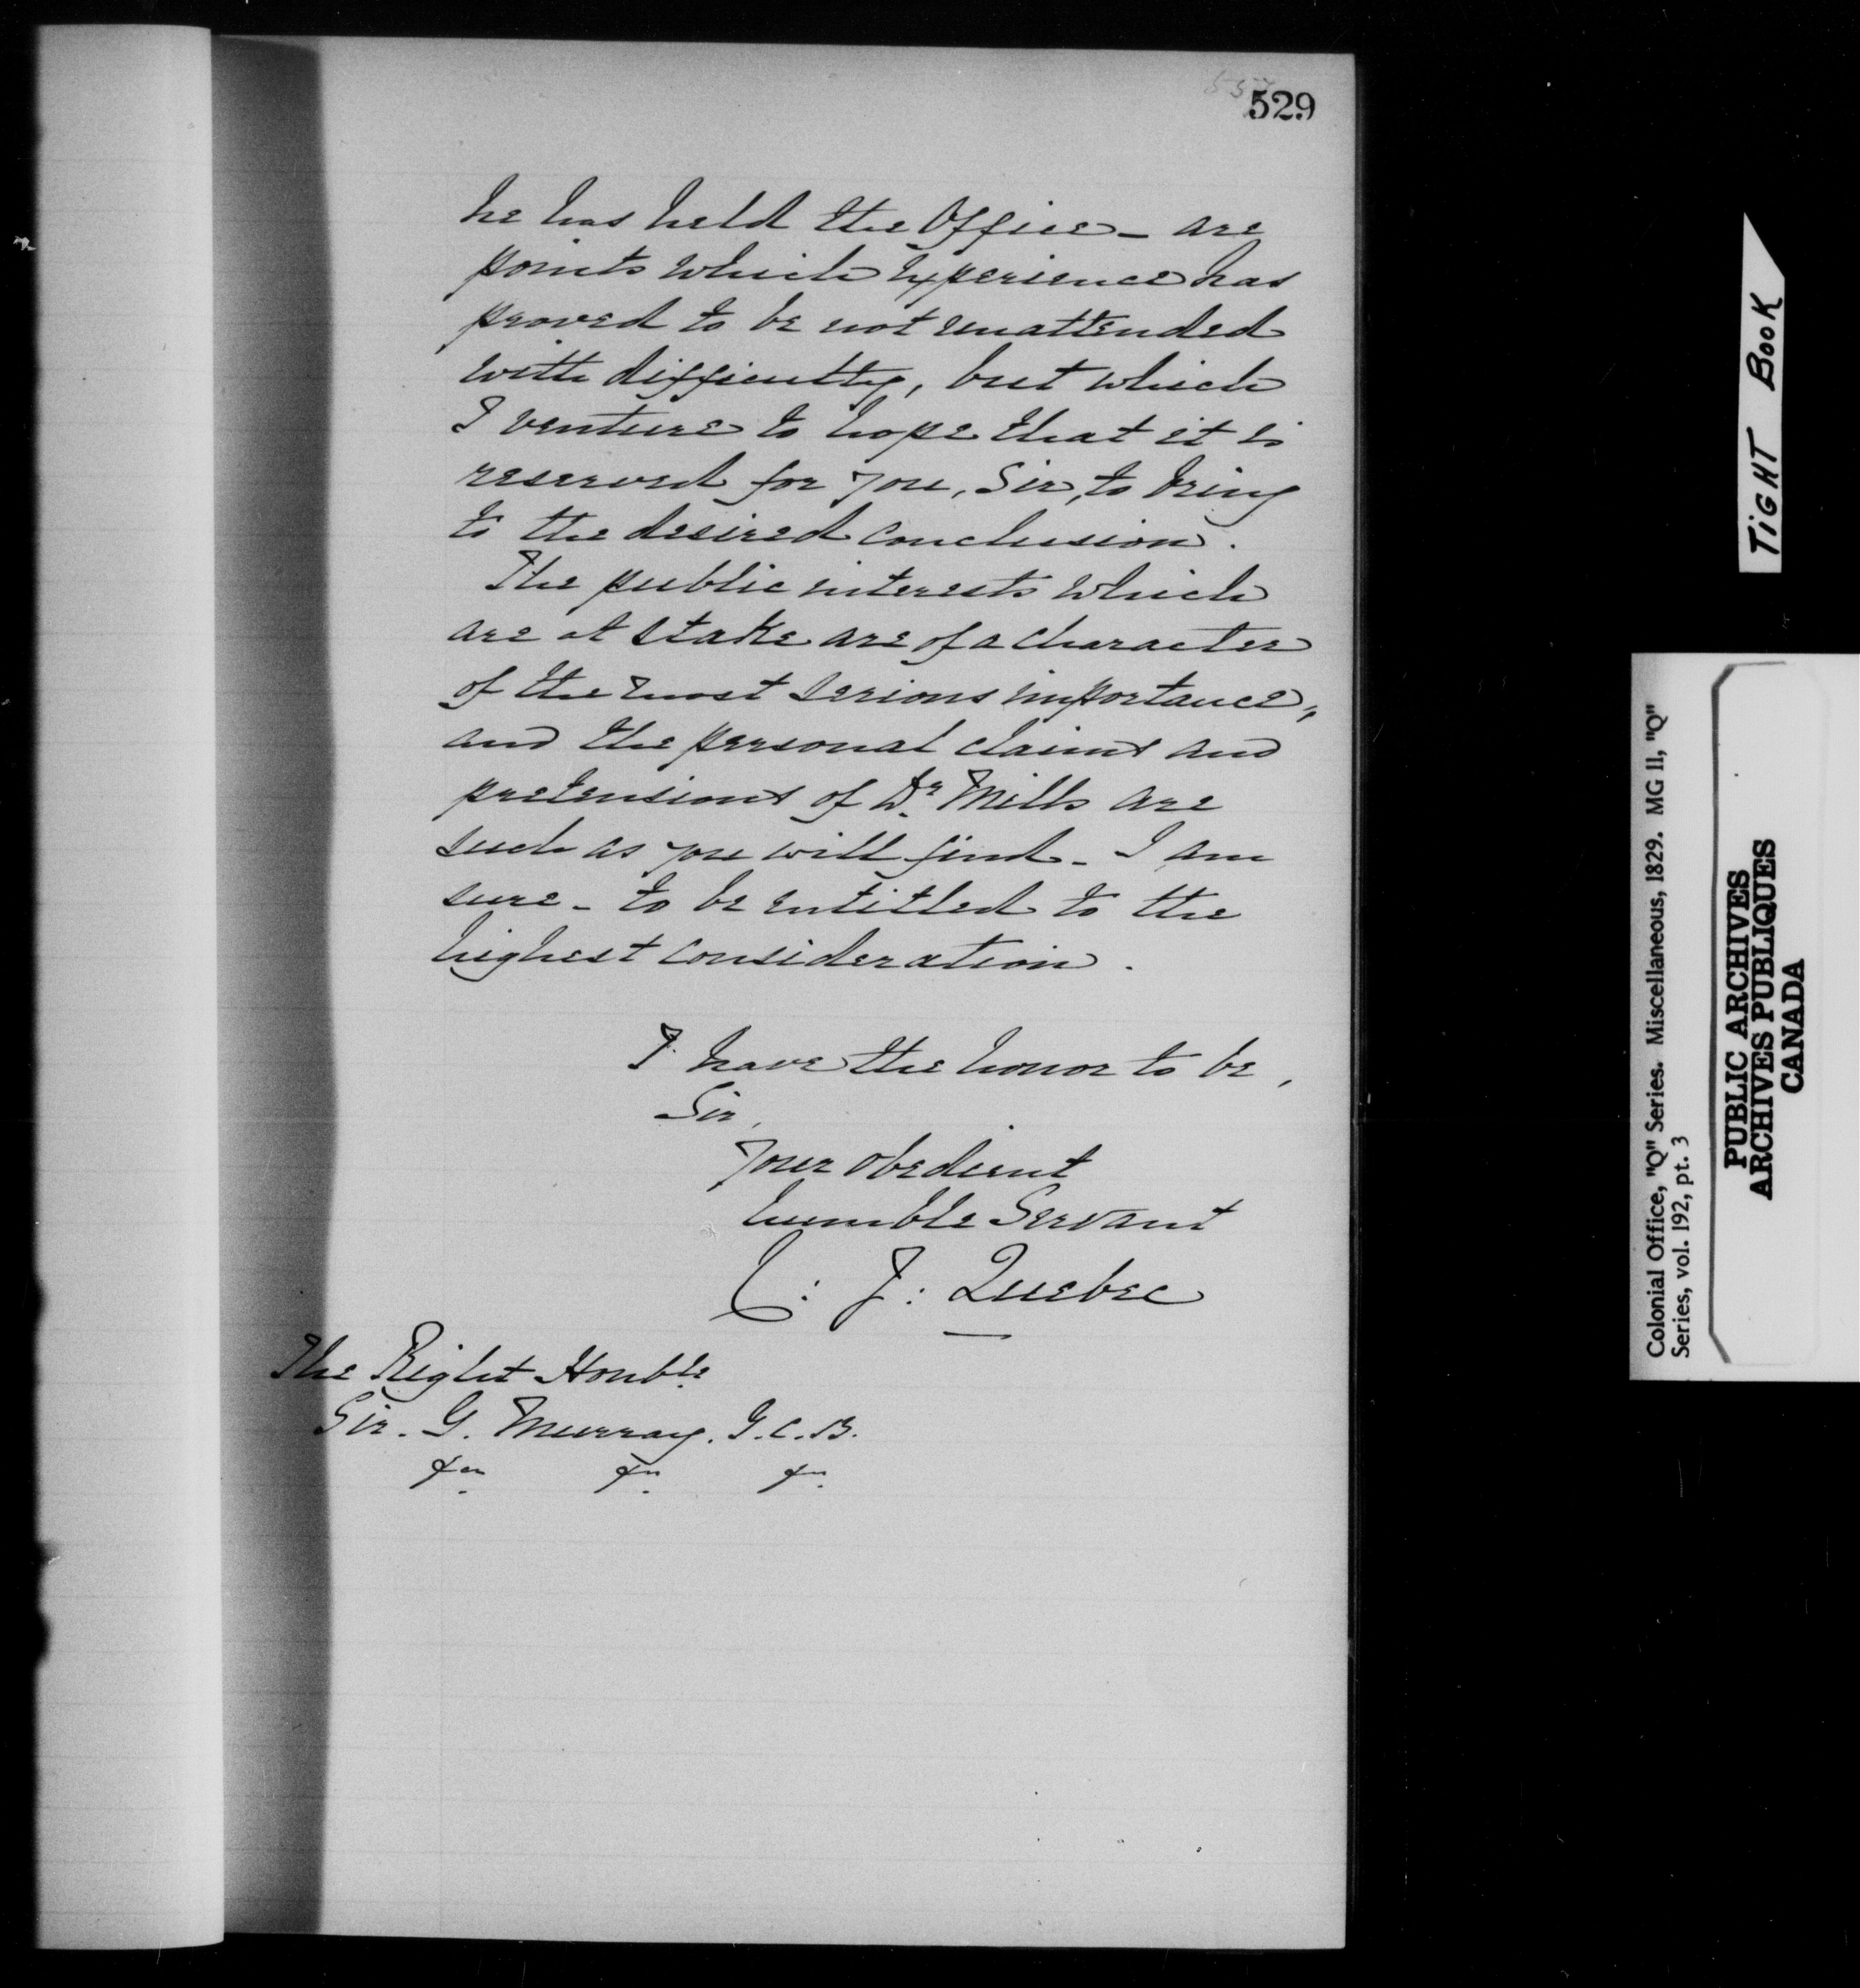 529
he has held the Office - are
points which experience has
proved to be not unattended
with difficulty, but which
I venture to hope that it is
reserved for you, Sir, to bring
to the desired conclusion.
The public interests which
are at stake are of a character
of the most serious importance,
and the personal claims and
pretensions of Dr. Mills are
such as you will find - I am
sure - to be entitled to the
highest consideration.
I have the honor to be,
Sir,
Your obedient
humble Servant
C: J: Quebec
The Right Honble
Sir. G. Murray. G.C.B.
TIGHT BOOK
Colonial Office, "Q" Series. Miscellaneous, 1829. MG 11, "Q"
Series, vol. 192, pt. 3
PUBLIC ARCHIVES
ARCHIVES PUBLIQUES
CANADA